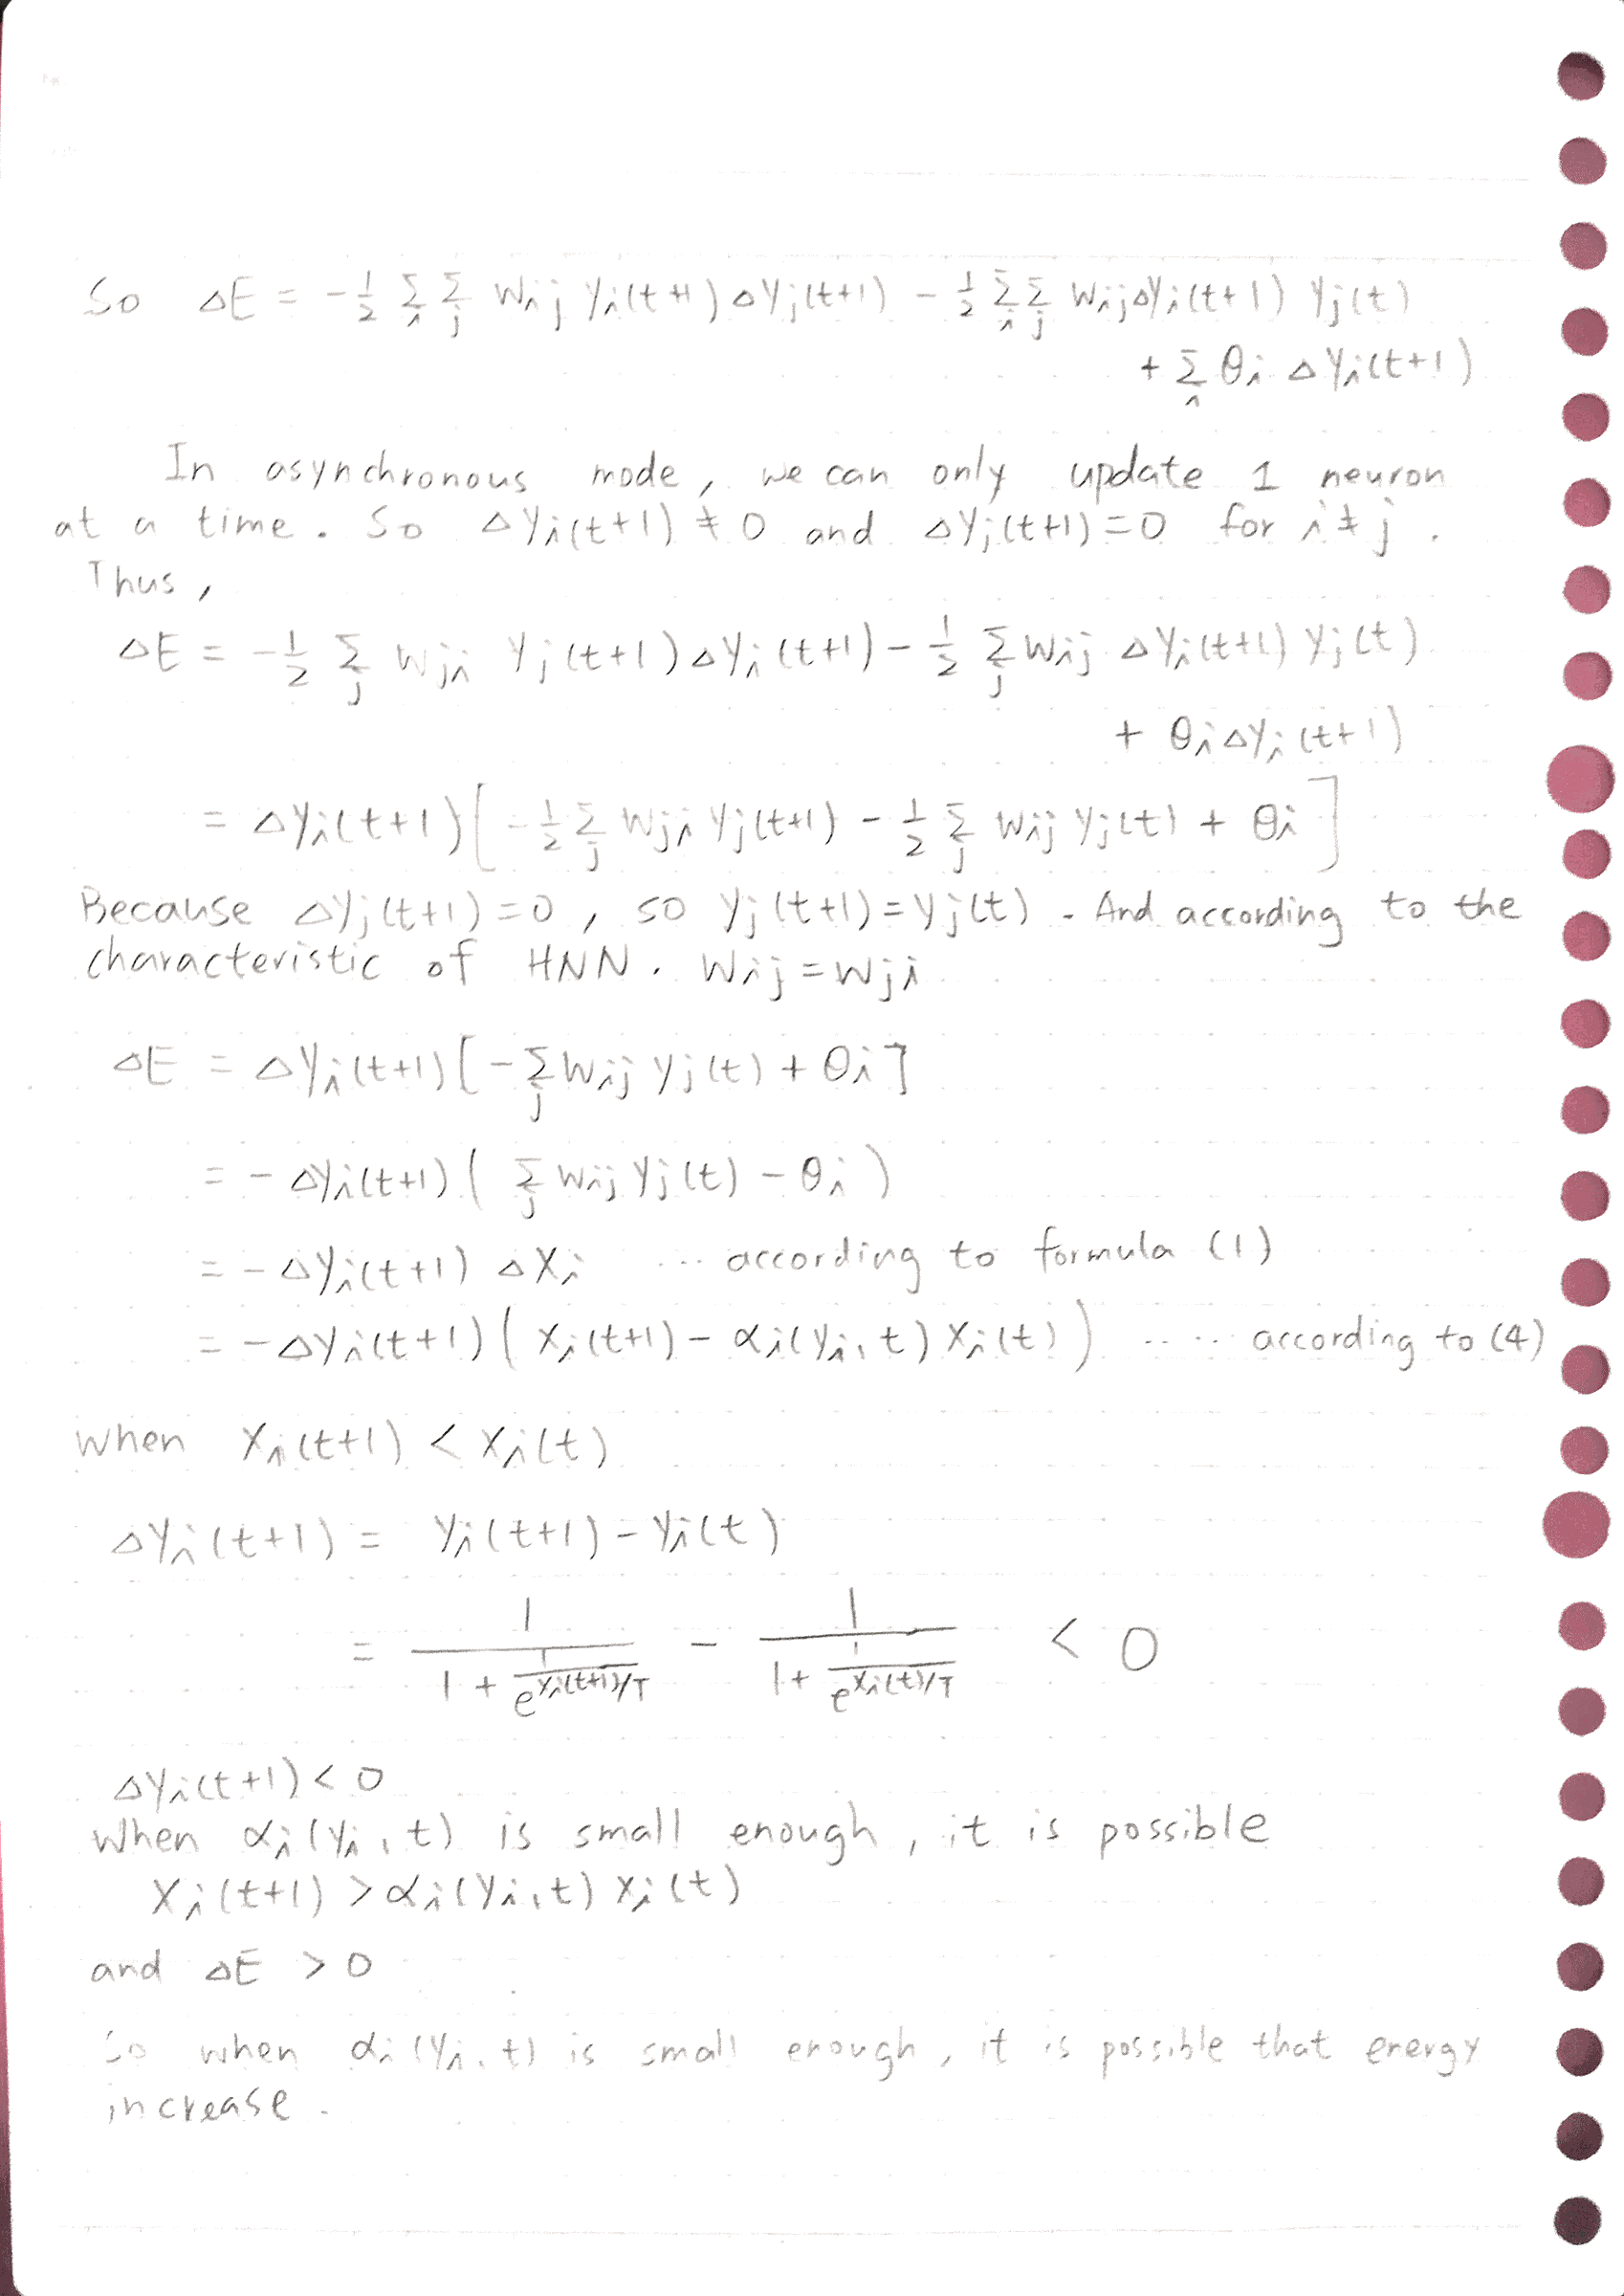 So ΔE = -½ Σ_i Σ_j W_ij Y_i(t+1) ΔY_j(t+1) - ½ Σ_i Σ_j W_ij ΔY_i(t+1) Y_j(t)
+ Σ_i θ_i ΔY_i(t+1)
In asynchronous mode, we can only update 1 neuron
at a time. So ΔY_i(t+1) ≠ 0 and ΔY_j(t+1) = 0 for i ≠ j.
Thus,
ΔE = -½ Σ_j W_ji Y_j(t+1) ΔY_i(t+1) - ½ Σ_j W_ij ΔY_i(t+1) Y_j(t)
+ θ_i ΔY_i(t+1)
= ΔY_i(t+1) [ -½ Σ_j W_ji Y_j(t+1) - ½ Σ_j W_ij Y_j(t) + θ_i ]
Because ΔY_j(t+1) = 0, so Y_j(t+1) = Y_j(t). And according to the
characteristic of HNN. W_ij = W_ji
ΔE = ΔY_i(t+1) [ - Σ_j W_ij Y_j(t) + θ_i ]
= - ΔY_i(t+1) ( Σ_j W_ij Y_j(t) - θ_i )
= - ΔY_i(t+1) ΔX_i ... according to formula (1)
= - ΔY_i(t+1) ( X_i(t+1) - α_i(Y_i, t) X_i(t) ) ..... according to (4)
when X_i(t+1) < X_i(t)
ΔY_i(t+1) = Y_i(t+1) - Y_i(t)
= 1 / (1 + 1 / e^{X_i(t+1)/T}) - 1 / (1 + 1 / e^{X_i(t)/T}) < 0
ΔY_i(t+1) < 0
When α_i(Y_i, t) is small enough, it is possible
X_i(t+1) > α_i(Y_i, t) X_i(t)
and ΔE > 0
So when α_i(Y_i, t) is small enough, it is possible that energy
increase.